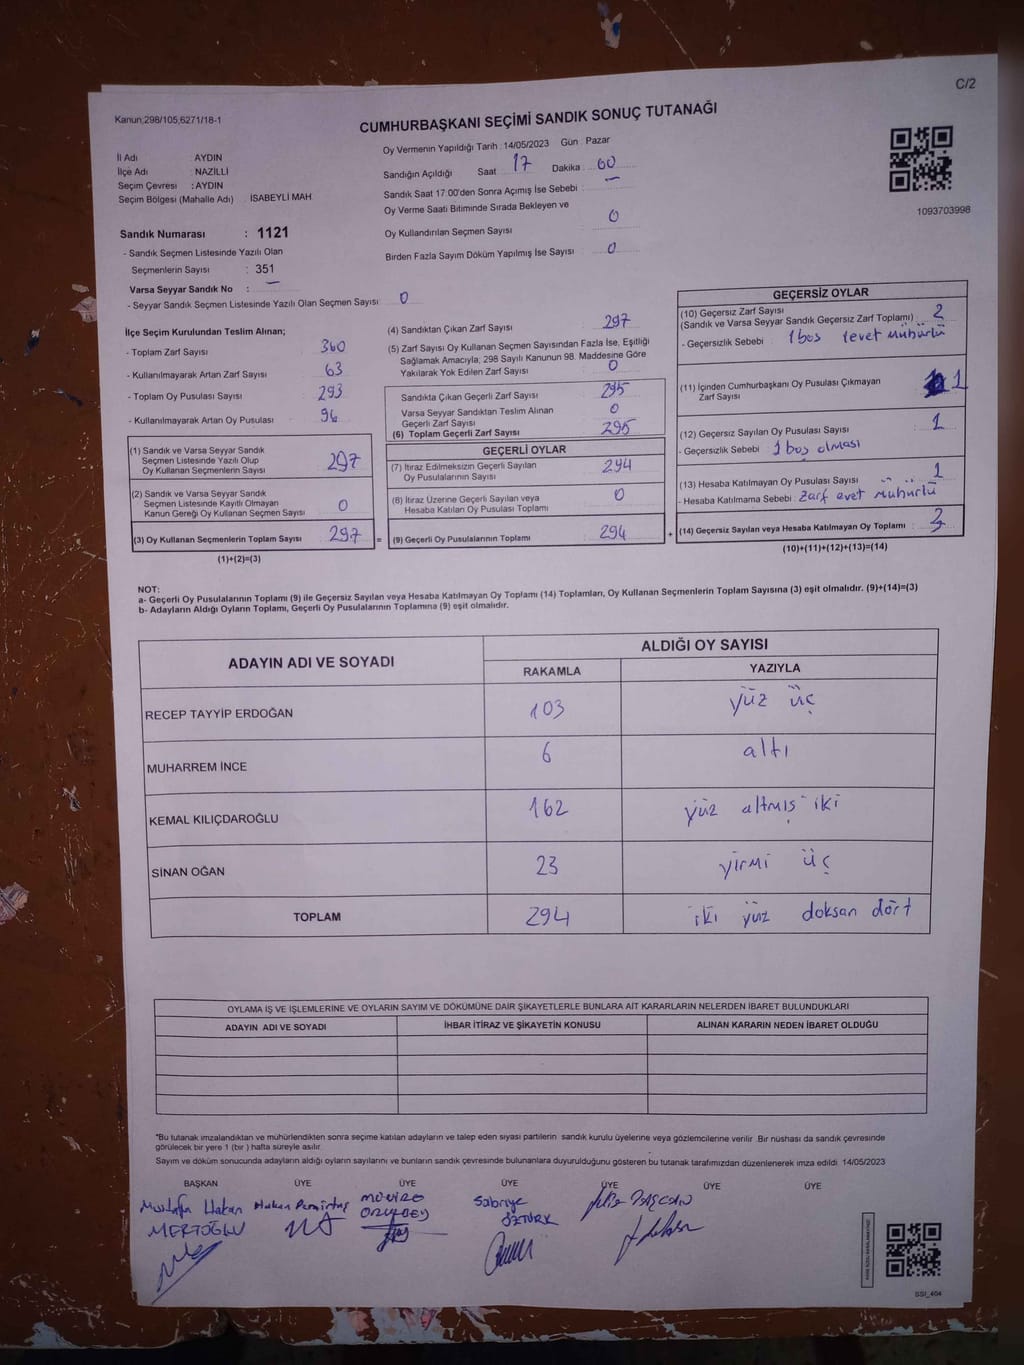 C/2
Kanun;298/105,6271/18-1
CUMHURBAŞKANI SEÇİMİ SANDIK SONUÇ TUTANAĞI
İl Adı AYDIN
İlçe Adı : NAZİLLİ
Seçim Çevresi : AYDIN
Seçim Bölgesi (Mahalle Adı) İSABEYLİ MAH
Oy Vermenin Yapıldığı Tarih : 14/05/2023 Gün : Pazar
Sandığın Açıldığı Saat 17 Dakika : 00
Sandık Saat 17:00'den Sonra Açımış İse Sebebi : —
Oy Verme Saati Bitiminde Sırada Bekleyen ve
Oy Kullandırılan Seçmen Sayısı 0
Birden Fazla Sayım Döküm Yapılmış İse Sayısı : 0
1093703998
Sandık Numarası : 1121
- Sandık Seçmen Listesinde Yazılı Olan
Seçmenlerin Sayısı : 351
Varsa Seyyar Sandık No : —
- Seyyar Sandık Seçmen Listesinde Yazılı Olan Seçmen Sayısı 0
İlçe Seçim Kurulundan Teslim Alınan;
- Toplam Zarf Sayısı 360
- Kullanılmayarak Artan Zarf Sayısı : 63
- Toplam Oy Pusulası Sayısı : 293
- Kullanılmayarak Artan Oy Pusulası : 96
(1) Sandık ve Varsa Seyyar Sandık
Seçmen Listesinde Yazılı Olup
Oy Kullanan Seçmenlerin Sayısı 297
(2) Sandık ve Varsa Seyyar Sandık
Seçmen Listesinde Kayıtlı Olmayan
Kanun Gereği Oy Kullanan Seçmen Sayısı 0
(3) Oy Kullanan Seçmenlerin Toplam Sayısı 297 =
(1)+(2)=(3)
(4) Sandıktan Çıkan Zarf Sayısı : 297
(5) Zarf Sayısı Oy Kullanan Seçmen Sayısından Fazla İse, Eşitliği
Sağlamak Amacıyla; 298 Sayılı Kanunun 98. Maddesine Göre
Yakılarak Yok Edilen Zarf Sayısı : 0
Sandıkta Çıkan Geçerli Zarf Sayısı : 295
Varsa Seyyar Sandıktan Teslim Alınan
Geçerli Zarf Sayısı : 0
(6) Toplam Geçerli Zarf Sayısı : 295
GEÇERLİ OYLAR
(7) İtiraz Edilmeksizin Geçerli Sayılan
Oy Pusulalarının Sayısı : 294
(8) İtiraz Üzerine Geçerli Sayılan veya
Hesaba Katılan Oy Pusulası Toplamı : 0
(9) Geçerli Oy Pusulalarının Toplamı : 294 +
GEÇERSİZ OYLAR
(10) Geçersiz Zarf Sayısı
(Sandık ve Varsa Seyyar Sandık Geçersiz Zarf Toplamı) : 2
- Geçersizlik Sebebi : 1 boş 1 evet mühürlü
(11) İçinden Cumhurbaşkanı Oy Pusulası Çıkmayan
Zarf Sayısı 1
(12) Geçersiz Sayılan Oy Pusulası Sayısı : 1
- Geçersizlik Sebebi : 1 boş olması
(13) Hesaba Katılmayan Oy Pusulası Sayısı : 1
- Hesaba Katılmama Sebebi : Zarf evet mühürlü
(14) Geçersiz Sayılan veya Hesaba Katılmayan Oy Toplamı : 3
(10)+(11)+(12)+(13)=(14)
NOT:
a- Geçerli Oy Pusulalarının Toplamı (9) ile Geçersiz Sayılan veya Hesaba Katılmayan Oy Toplamı (14) Toplamları, Oy Kullanan Seçmenlerin Toplam Sayısına (3) eşit olmalıdır. (9)+(14)=(3)
b- Adayların Aldığı Oyların Toplamı, Geçerli Oy Pusulalarının Toplamına (9) eşit olmalıdır.
ADAYIN ADI VE SOYADI ALDIĞI OY SAYISI
RAKAMLA YAZIYLA
RECEP TAYYİP ERDOĞAN 103 yüz üç
MUHARREM İNCE 6 altı
KEMAL KILIÇDAROĞLU 162 yüz altmış iki
SİNAN OĞAN 23 yirmi üç
TOPLAM 294 iki yüz doksan dört
OYLAMA İŞ VE İŞLEMLERİNE VE OYLARIN SAYIM VE DÖKÜMÜNE DAİR ŞİKAYETLERLE BUNLARA AİT KARARLARIN NELERDEN İBARET BULUNDUKLARI
ADAYIN ADI VE SOYADI İHBAR İTİRAZ VE ŞİKAYETİN KONUSU ALINAN KARARIN NEDEN İBARET OLDUĞU
*Bu tutanak imzalandıktan ve mühürlendikten sonra seçime katılan adayların ve talep eden siyasi partilerin sandık kurulu üyelerine veya gözlemcilerine verilir. Bir nüshası da sandık çevresinde
görülecek bir yere 1 (bir) hafta süreyle asılır.
Sayım ve döküm sonucunda adayların aldığı oyların sayılarını ve bunların sandık çevresinde bulunanlara duyurulduğunu gösteren bu tutanak tarafımızdan düzenlenerek imza edildi. 14/05/2023
BAŞKAN ÜYE ÜYE ÜYE ÜYE ÜYE ÜYE
Mustafa Hakan Hakan Sabriye
MERTOĞLU ÖZTÜRK
SSI_404